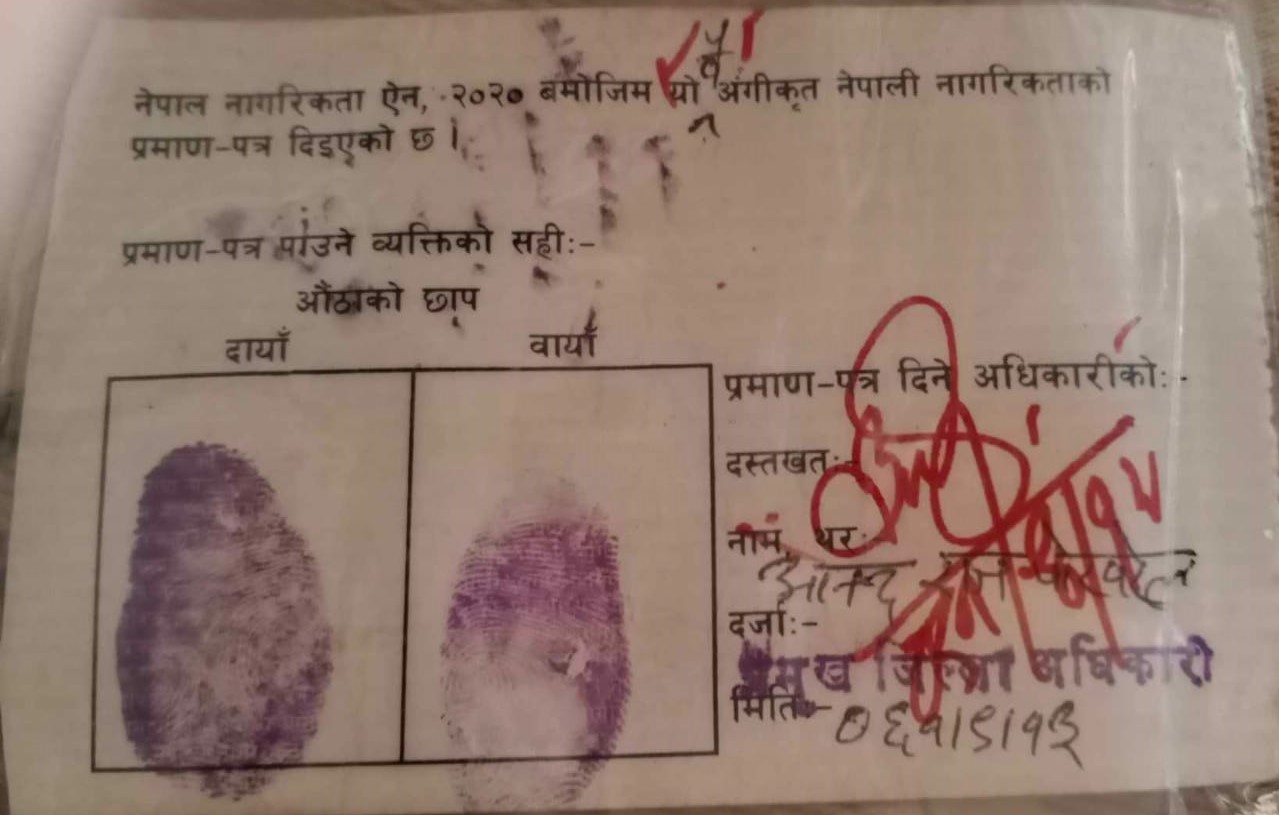 नेपाल नागरिकता ऐन, २०२० बमोजिम यो अंगीकृत नेपाली नागरिकताको
प्रमाण-पत्र दिइएको छ ।
प्रमाण-पत्र पाउने व्यक्तिको सही:-
औंठाको छाप
दायाँ
वायाँ
प्रमाण-पत्र दिने अधिकारीको:-
दस्तखत:-
नाम, थर:-
आनन्द राज पोखरेल
दर्जा:-
प्रमुख जिल्ला अधिकारी
मिति:- ०६१/९/१३